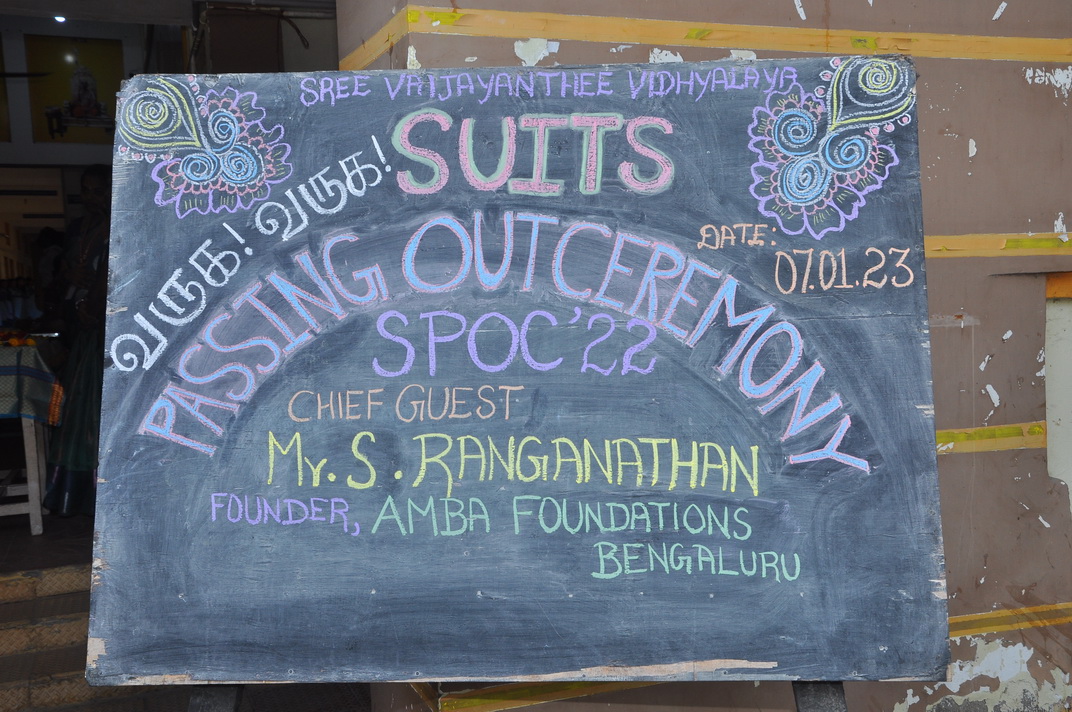 SREE VAIJAYANTHEE VIDHYALAYA
SUITS
வருக! வருக!
PASSING OUT CEREMONY
DATE:
07.01.23
SPOC'22
CHIEF GUEST
Mr. S. RANGANATHAN
FOUNDER, AMBA FOUNDATIONS
BENGALURU